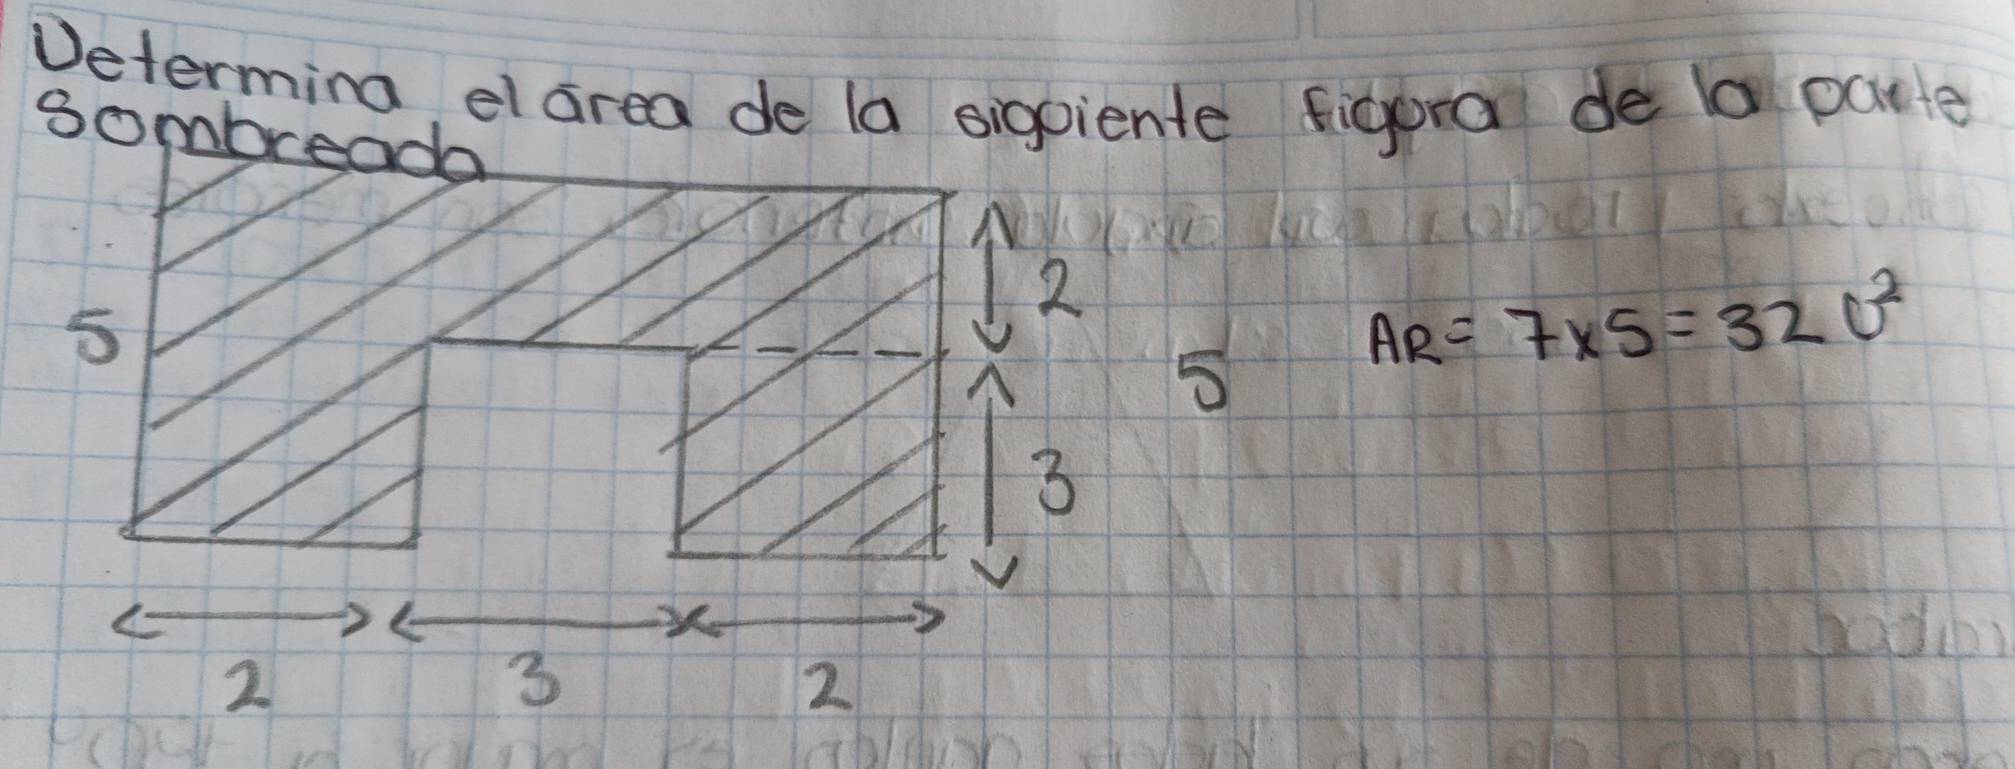 Determina el área de la siguiente figura de la parte
Sombreada
2
5
AR = 7x5 = 32 U²
5
3
2
3
2